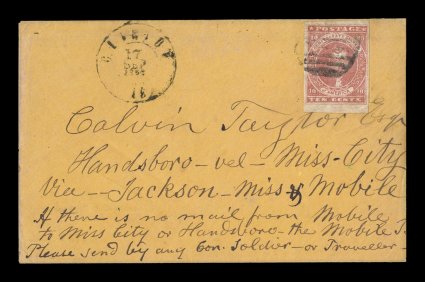 CLINTON
17
18
POSTAGE
TEN CENTS
Calvin Taylor Esq
Handsboro - vel - Miss-City
Via -- Jackson - Miss & Mobile
If there is no mail from Mobile
to Miss City or Handsboro - the Mobile
Please send by any Con. Soldier - or Traveller -